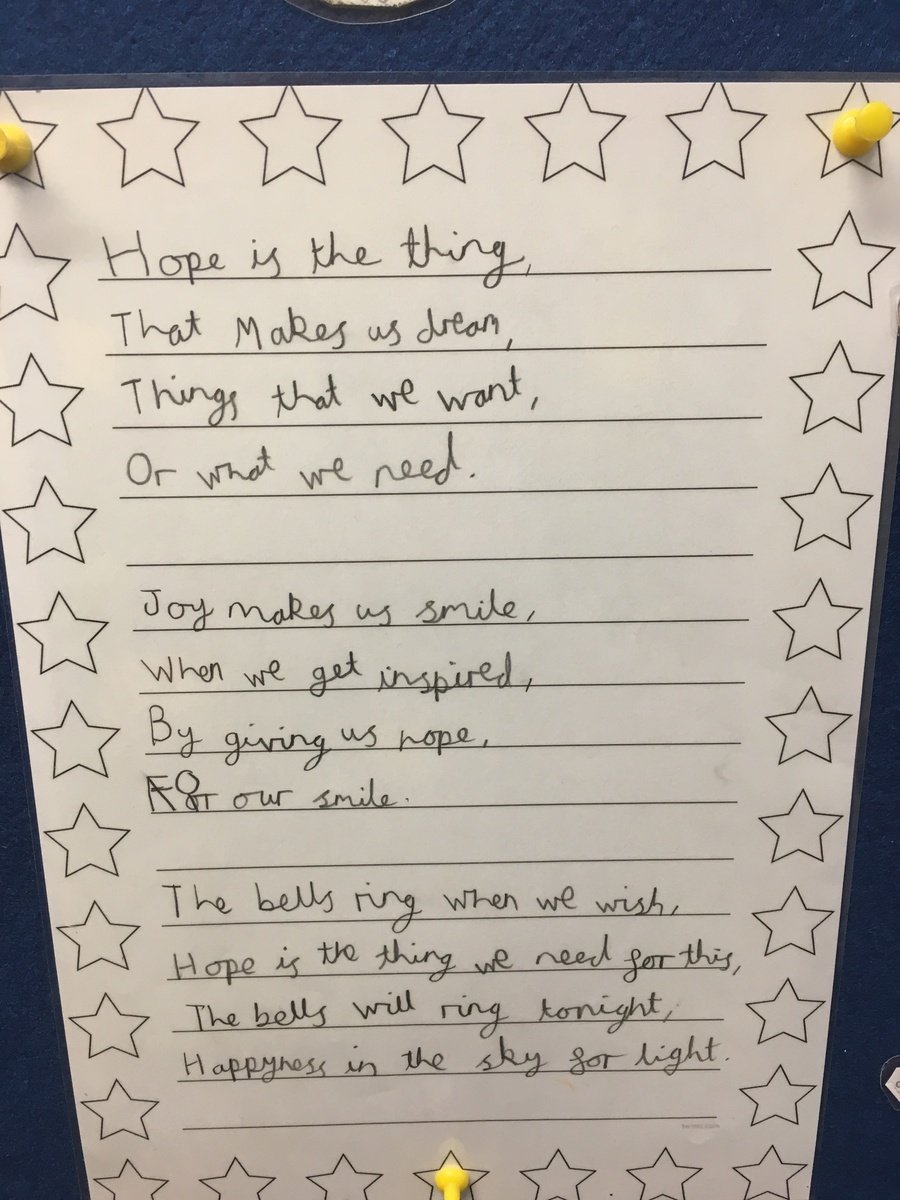 Hope is the thing,
That Makes us dream,
Things that we want,
Or what we need.
Joy makes us smile,
When we get inspired,
By giving us hope,
For our smile.
The bells ring when we wish,
Hope is the thing we need for this,
The bells will ring tonight,
Happyness in the sky for light.